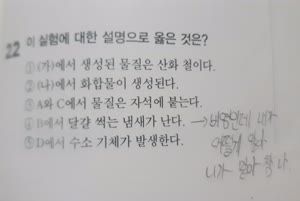 22 이 실험에 대한 설명으로 옳은 것은?
① (가)에서 생성된 물질은 산화 철이다.
② (나)에서 화합물이 생성된다.
③ A와 C에서 물질은 자석에 붙는다.
④ B에서 달걀 썩는 냄새가 난다. → 비염인데 내가
어떻게 알아
⑤ D에서 수소 기체가 발생한다.
니가 맡아